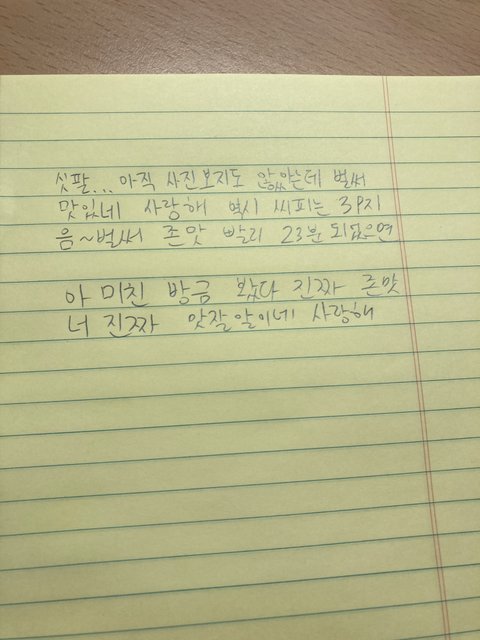 싯팔... 아직 사진보지도 않았는데 벌써
맛있네 사랑해 역시 씨피는 3P지
음~벌써 존맛 빨리 23분 되었으면
아 미친 방금 왔다 진짜 존맛
너 진짜 맛잘알이네 사랑해